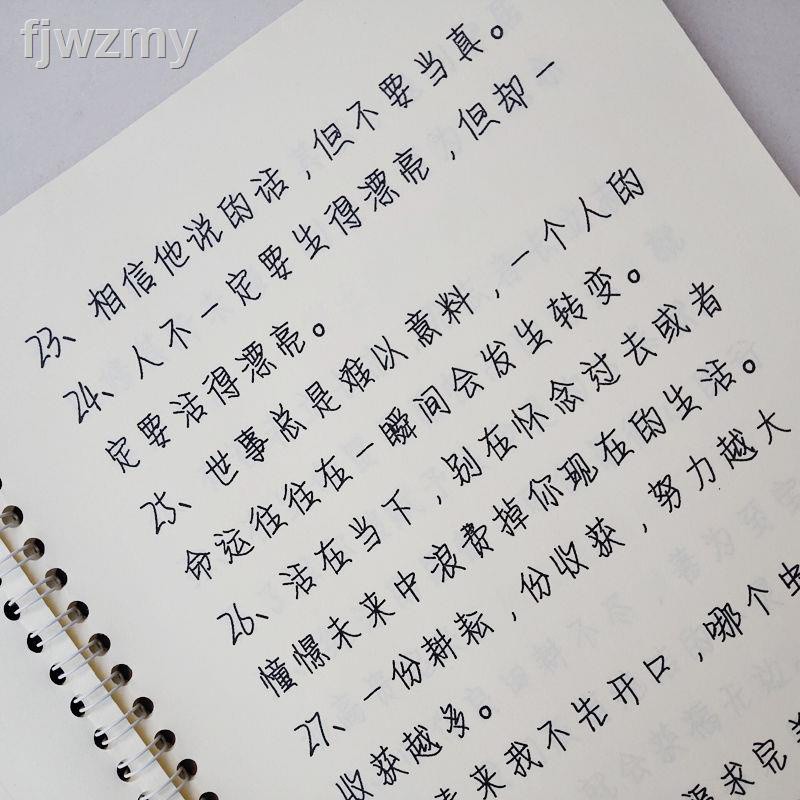 fjwzmy
23、相信他说的话，但不要当真。
24、人不一定要生得漂亮，但却一
定要活得漂亮。
25、世事总是难以意料，一个人的
命运往往在一瞬间会发生转变。
26、活在当下，别在怀念过去或者
憧憬未来中浪费掉你现在的生活。
27、一份耕耘，份收获，努力越大
收获越多。
春来我不先开口，哪个虫
追求完美